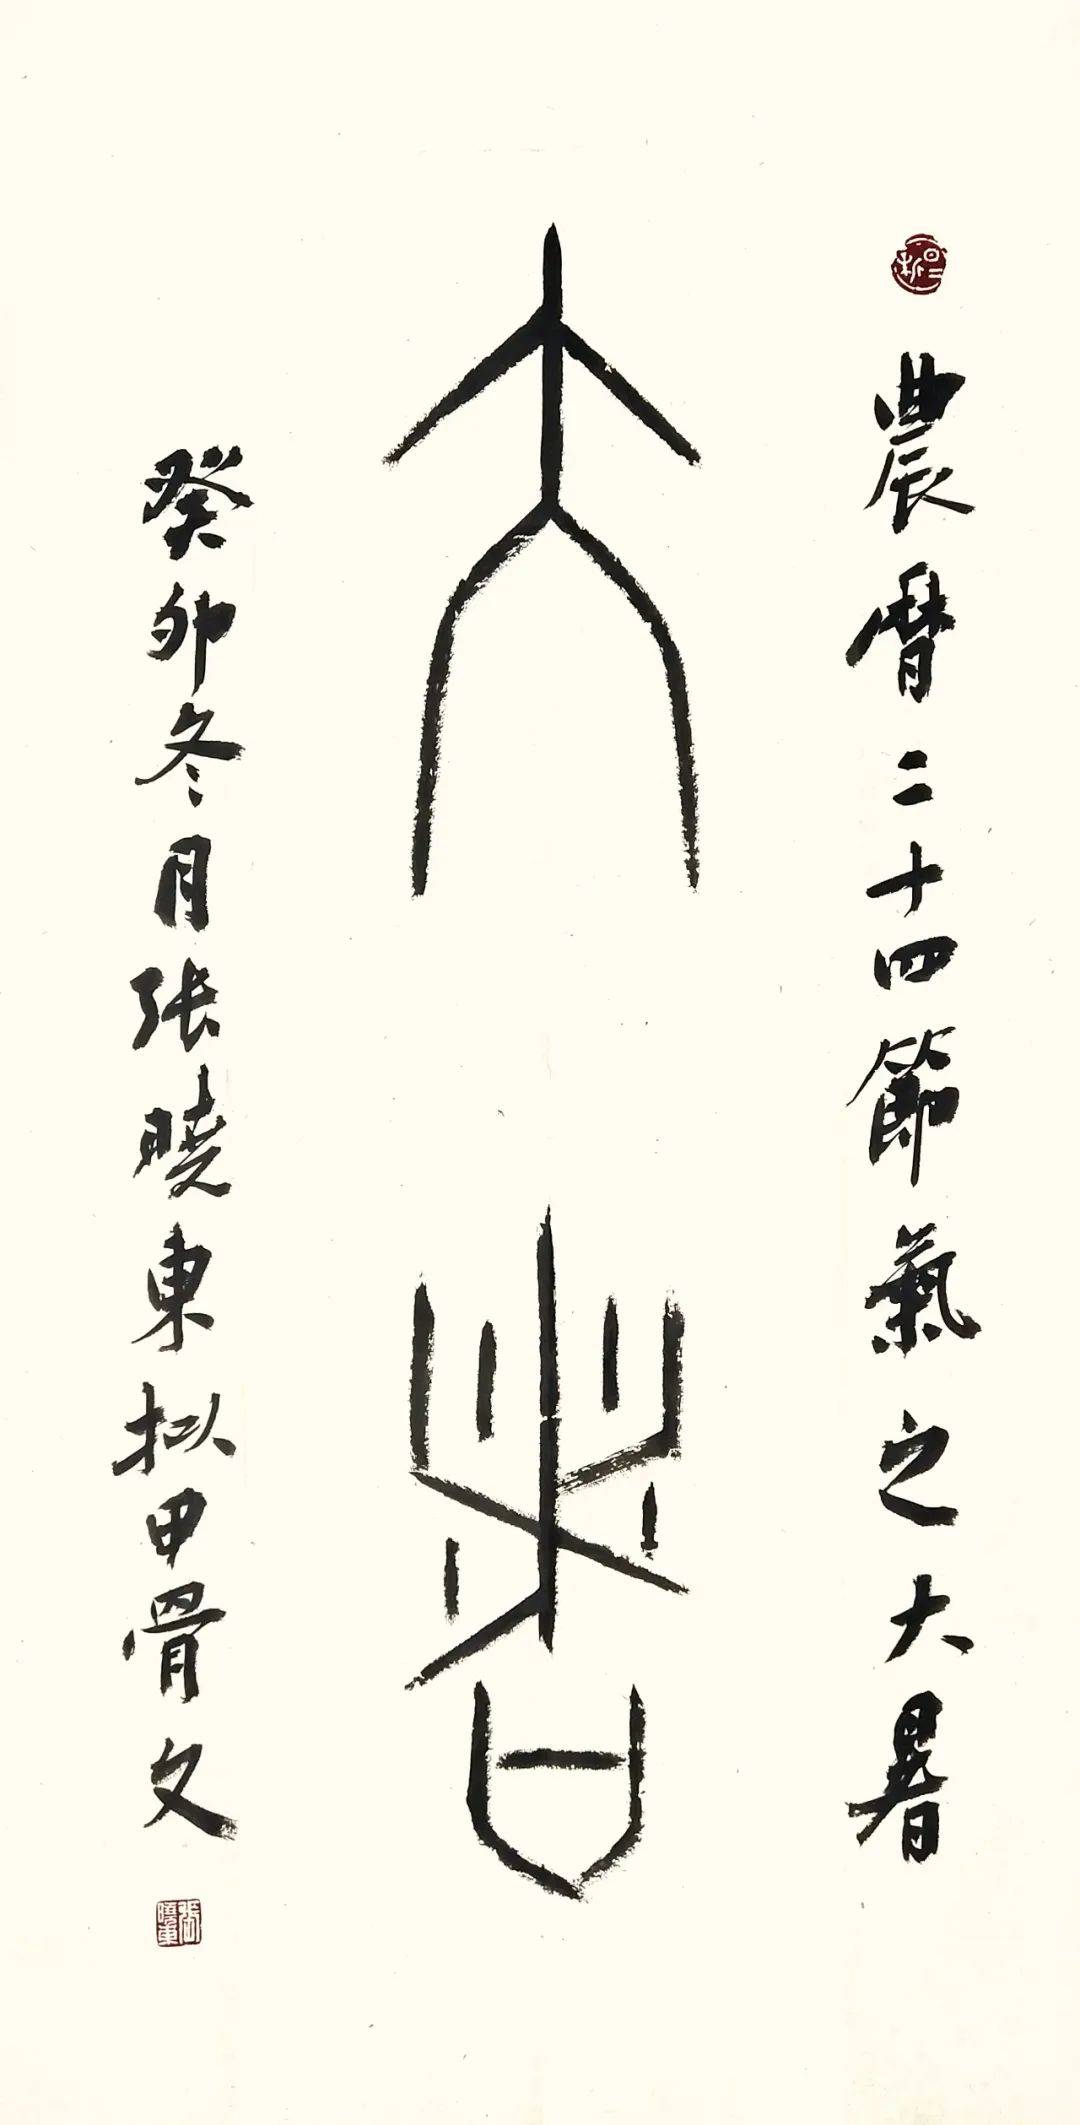 農曆二十四節氣之大暑
大暑
癸卯冬月張曉東拟甲骨文
張曉東